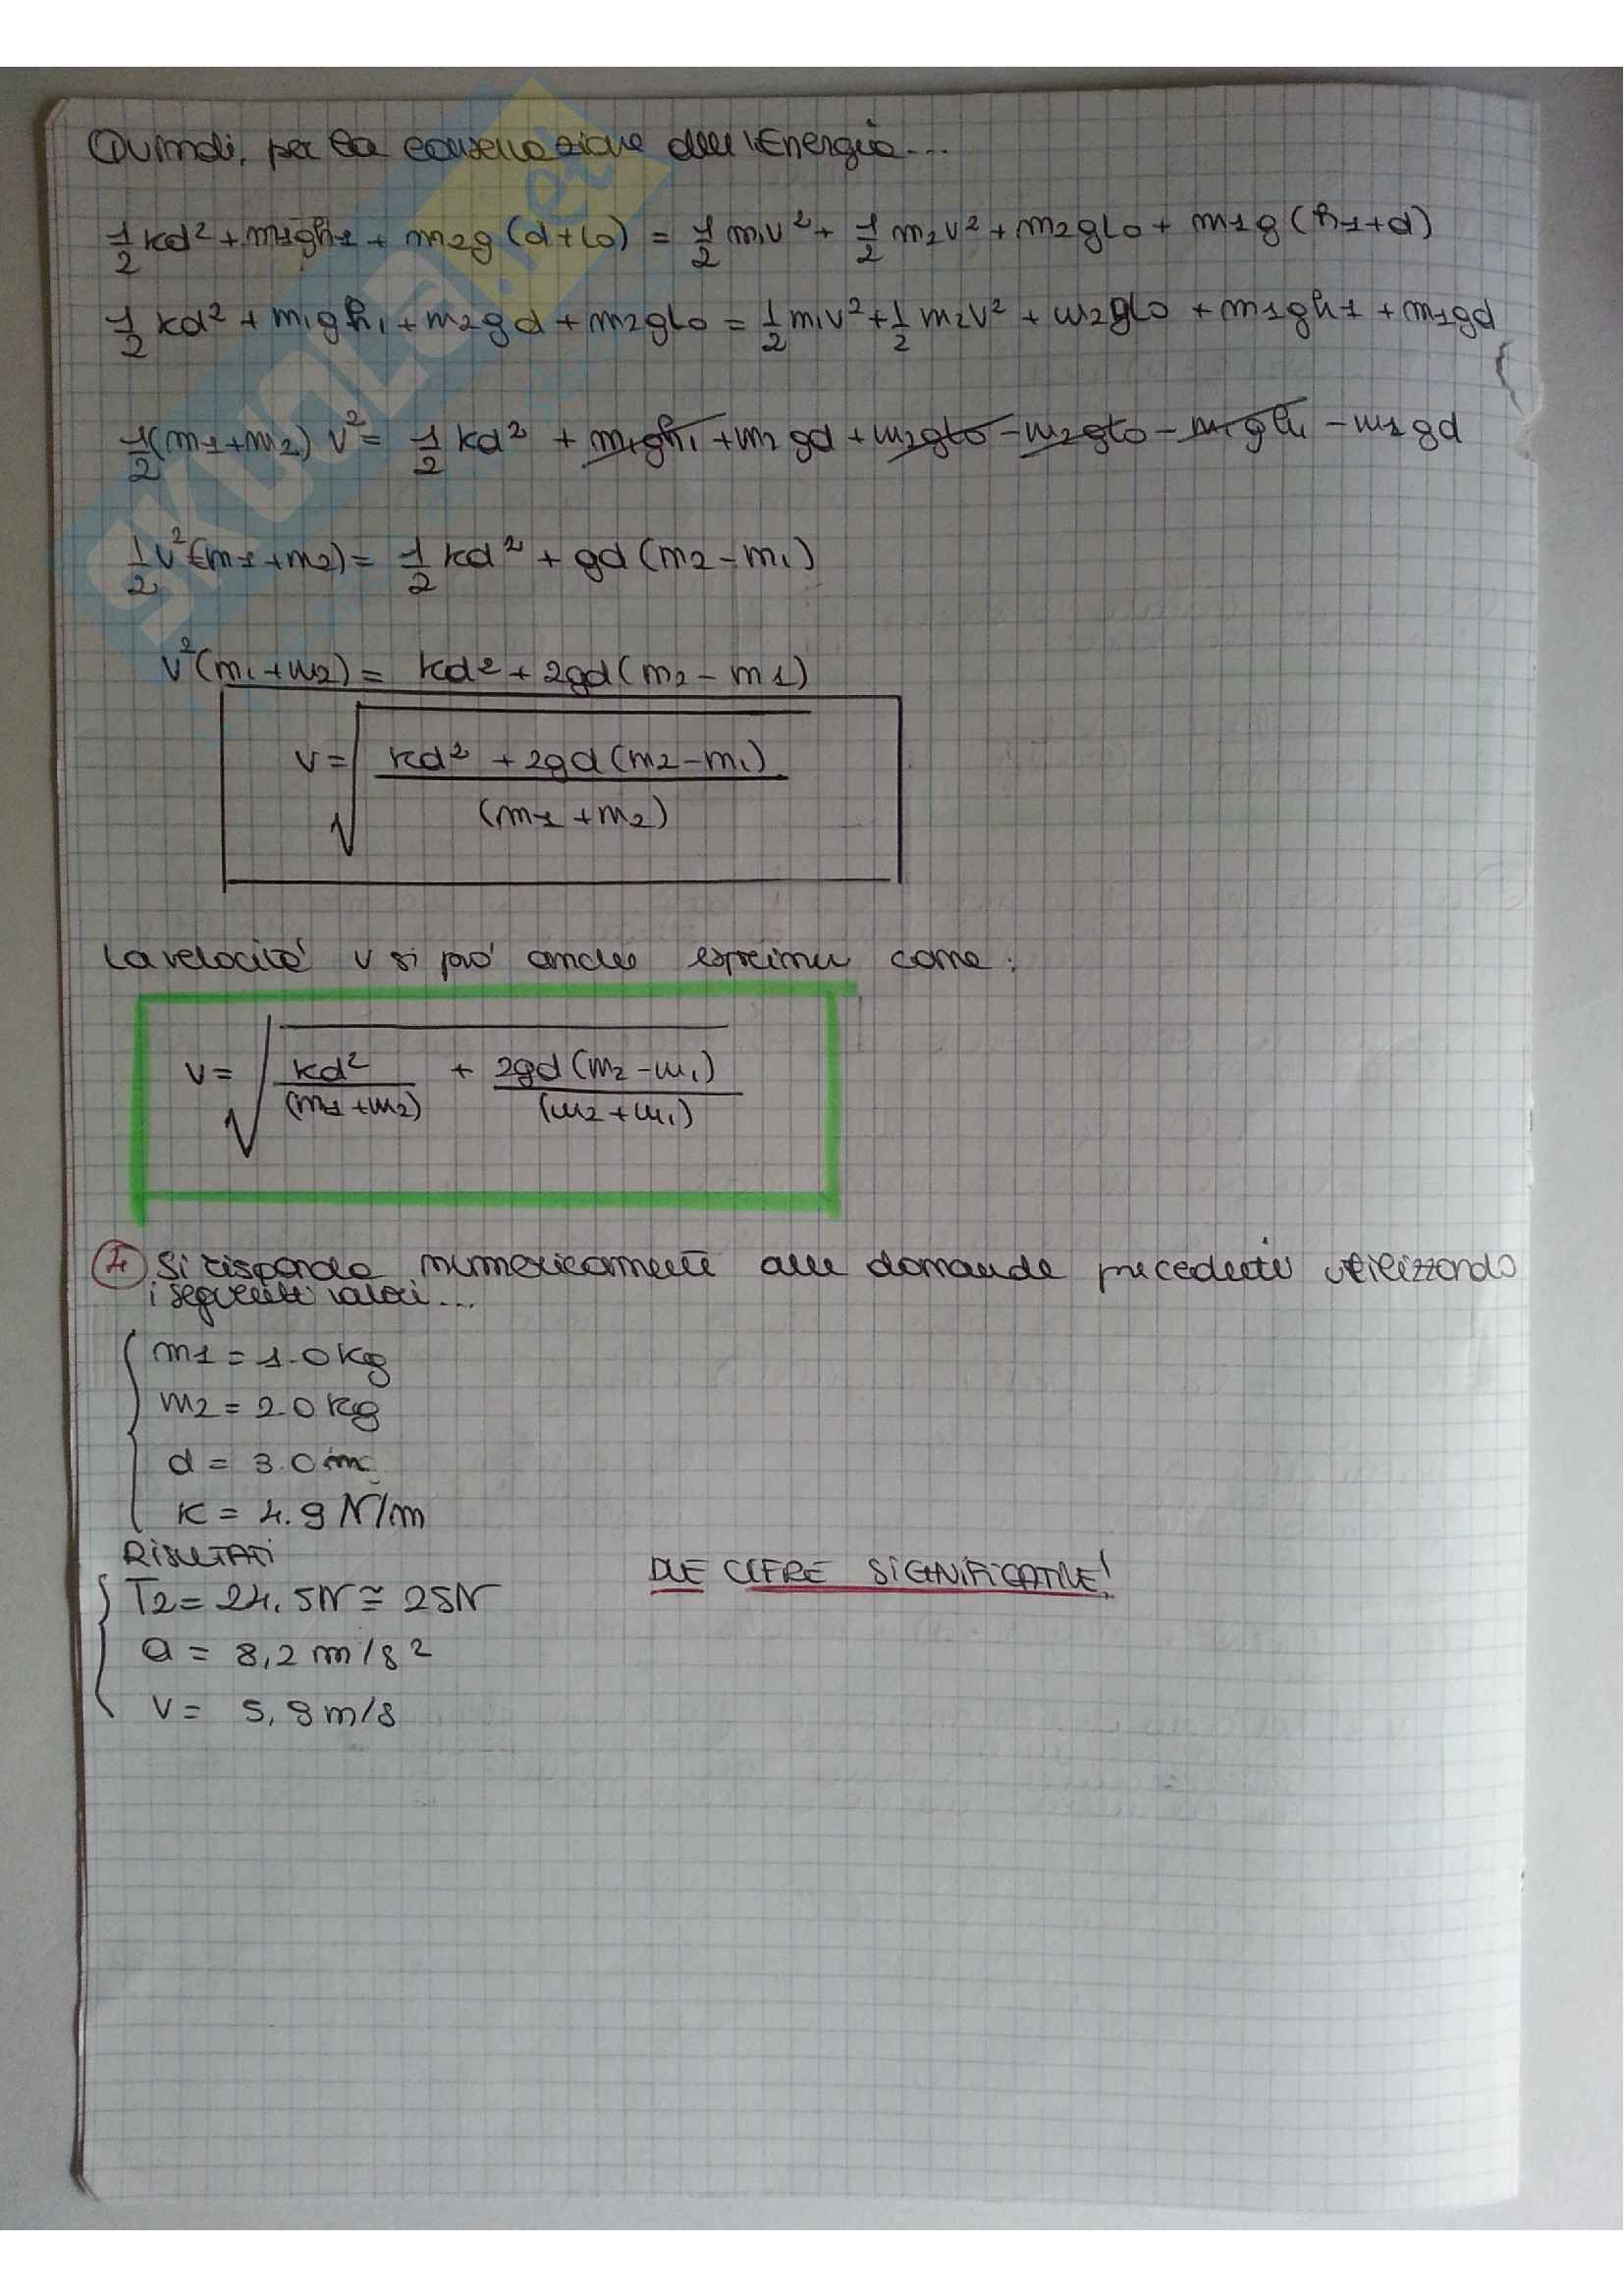 Quindi, per la conservazione dell'Energia...
1/2 kd² + m1gh1 + m2g (d+l0) = 1/2 m1v² + 1/2 m2v² + m2gl0 + m1g (h1+d)
1/2 kd² + m1gh1 + m2gd + m2gl0 = 1/2 m1v² + 1/2 m2v² + m2gl0 + m1gh1 + m1gd
1/2 (m1+m2) v² = 1/2 kd² + m1gh1 + m2gd + m2gl0 - m2gl0 - m1gh1 - m1gd
1/2 v² (m1+m2) = 1/2 kd² + gd (m2-m1)
v² (m1+m2) = kd² + 2gd (m2-m1)
v = √ kd² + 2gd (m2-m1) / (m1+m2)
La velocità v si può anche esprimere come:
v = √ kd² / (m1+m2) + 2gd (m2-m1) / (m2+m1)
4 Si risponda numericamente alle domande precedenti utilizzando
i seguenti valori...
m1 = 1.0 kg
m2 = 2.0 kg
d = 3.0 m
K = 4.9 N/m
RISULTATI
T2 = 24.5N ≅ 25N
DUE CIFRE SIGNIFICATIVE!
a = 8,2 m/s²
v = 5,9 m/s
SKUOLA.net